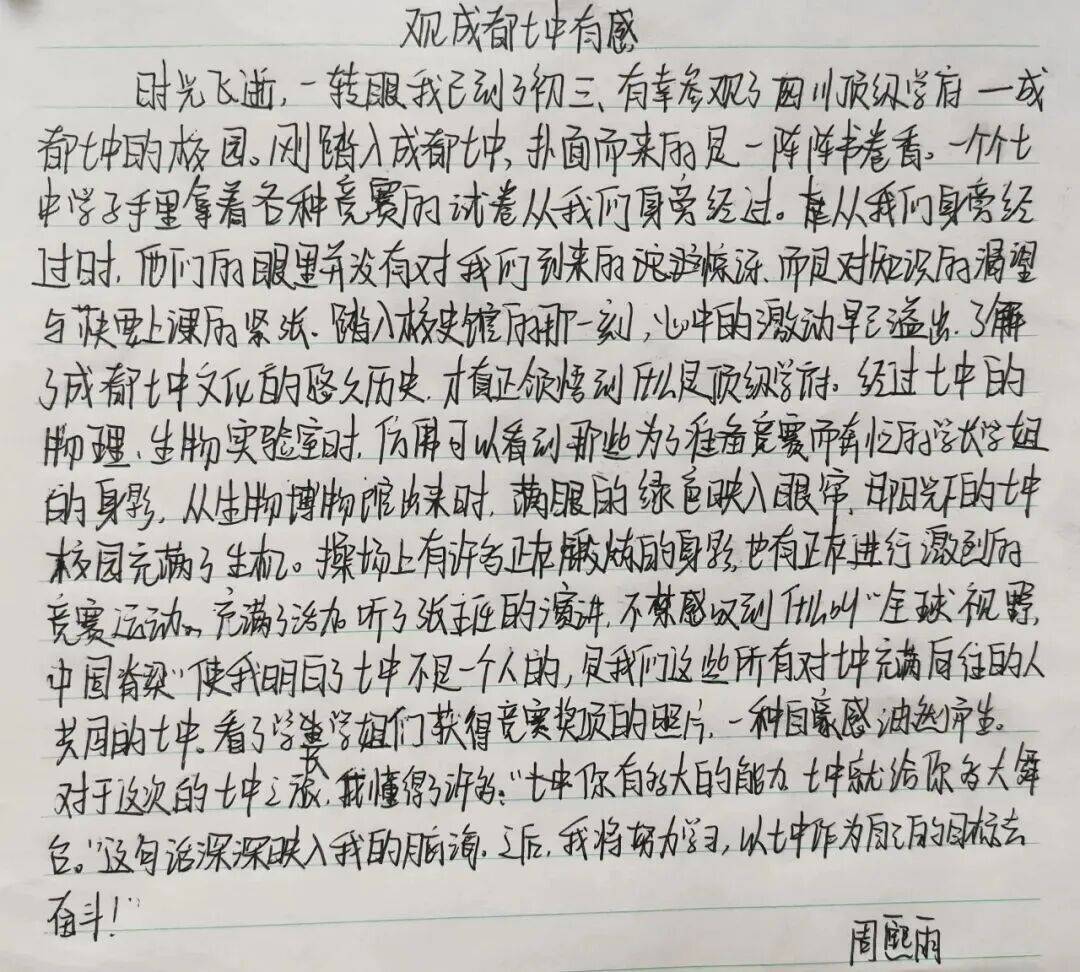 观成都七中有感
时光飞逝，一转眼我已到了初三、有幸参观了四川顶级学府一成
都七中的校园。刚踏入成都七中，扑面而来的是一阵阵书卷香。一个个七
中学子手里拿着各种竞赛的试卷从我们身旁经过。从我们身旁经
过时，他们的眼里并没有对我们到来的惊讶、而是对知识的渴望
与快要上课的紧张、踏入校史馆的那一刻，心中的激动早已溢出、了解
了成都七中文化的悠久历史、才真正领悟到什么是顶级学府。经过七中的
物理、生物实验室时，仿佛可以看到那些为了准备竞赛而奔忙的学长学姐
的身影，从生物博物馆出来时，满眼的绿色映入眼帘，阳光下的七中
校园充满了生机。操场上有许多正在锻炼的身影，也有正在进行激烈的
竞赛运动。充满了活力。听了张主任的演讲，不禁感叹到什么叫“全球视野，
中国脊梁”使我明白了七中不是一个人的，是我们这些所有对七中充满向往的人
共同的七中。看了学长学姐们获得竞赛奖项的照片，一种自豪感油然而生。
对于这次的七中之旅，我懂得了许多：“七中你有多大的能力 七中就给你多大舞
台。”这句话深深映入我的脑海，之后，我将努力学习，以七中作为自己的目标去
奋斗！”
周熙雨